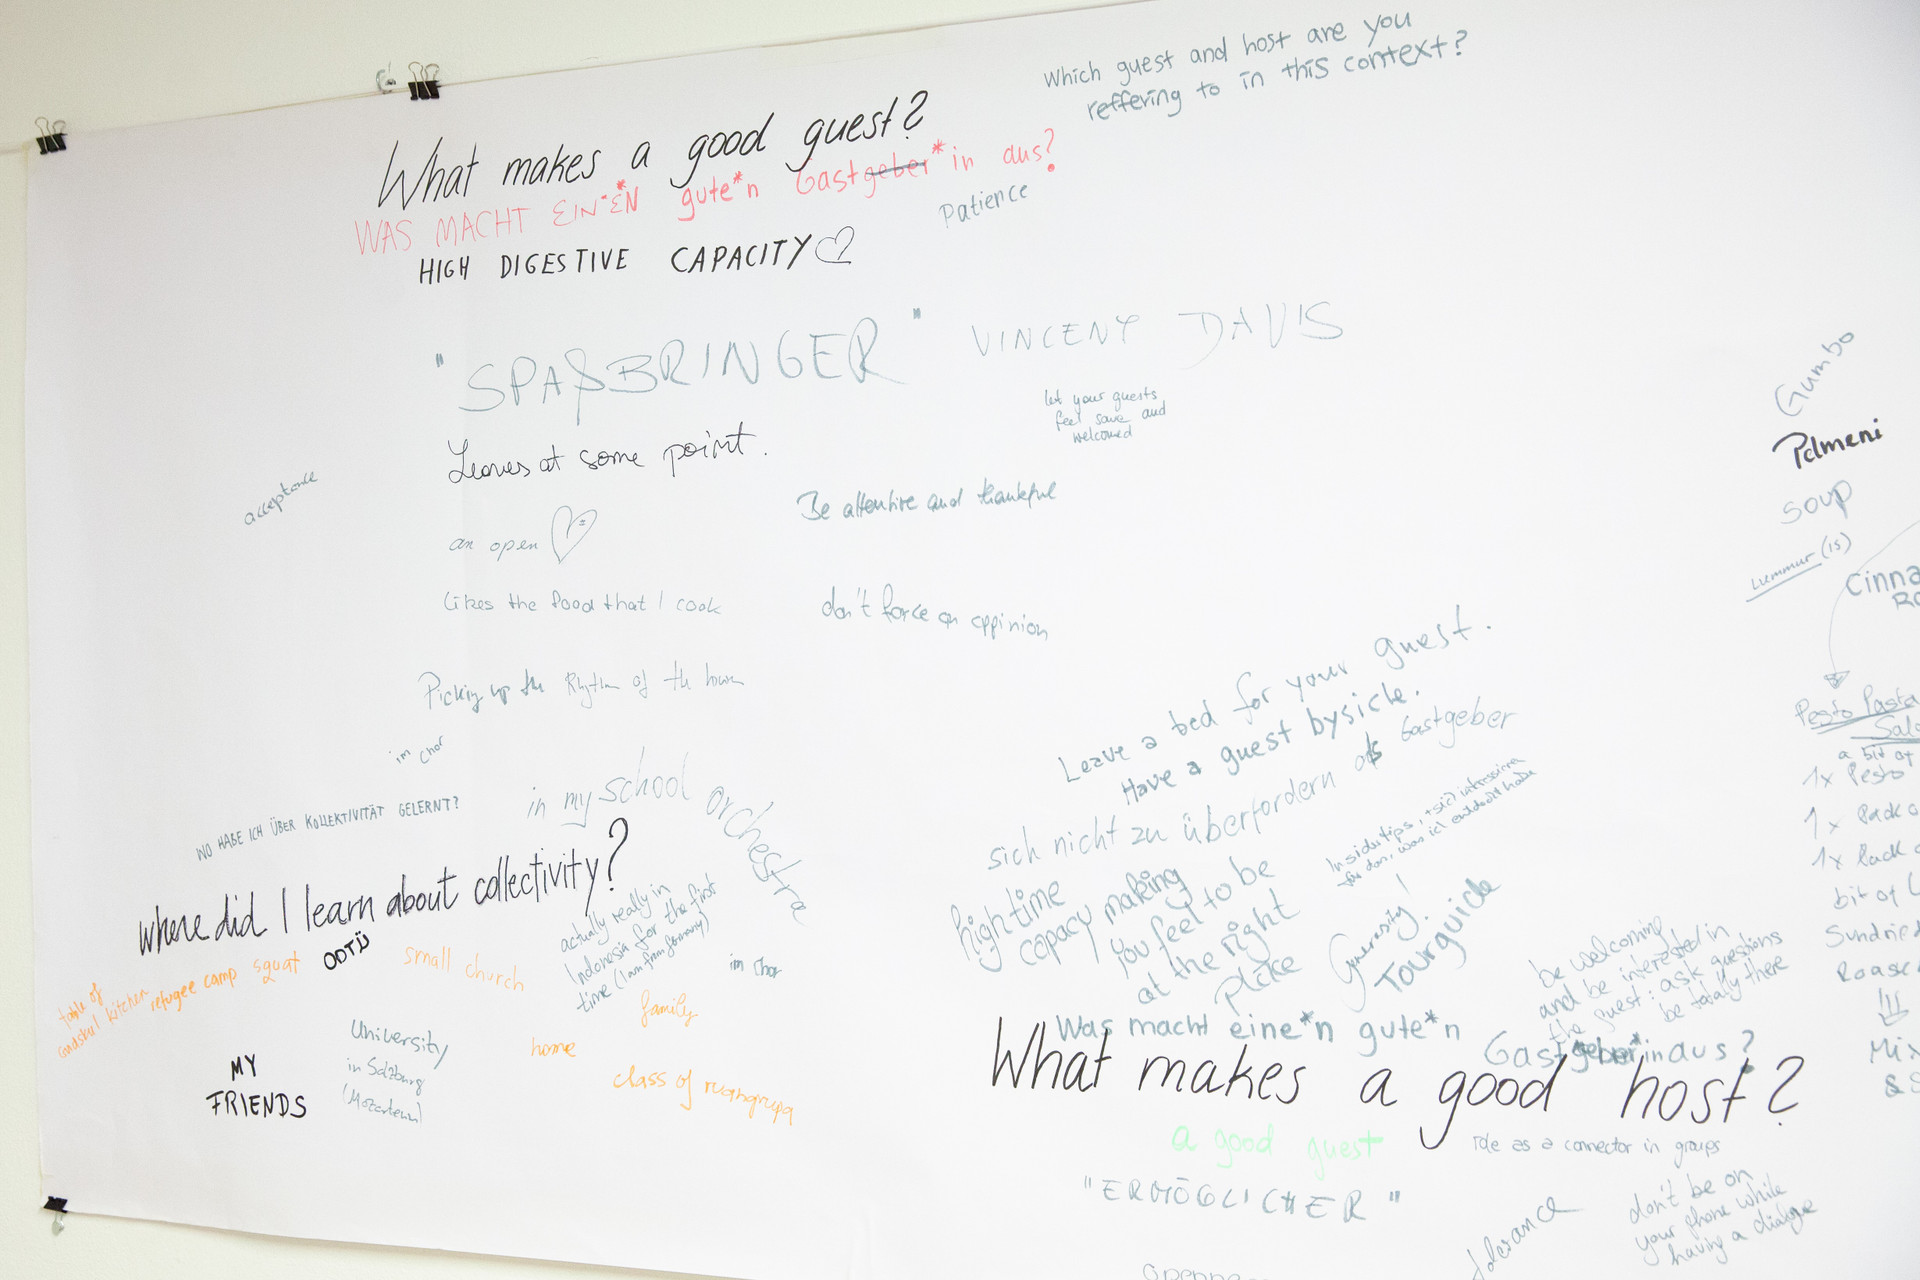 Which guest and host are you
reffering to in this context?
What makes a good guest?
WAS MACHT EIN*EN gute*n Gastgeber*in aus?
Patience
HIGH DIGESTIVE CAPACITY
"SPAßBRINGER"
VINCENT DAVIS
let your guests
feel save and
welcomed
Leaves at some point.
acceptance
Be attentive and thankful
an open
Likes the food that I cook
don't force an oppinion
Picking up the Rhythm of the town
im Chor
WO HABE ICH ÜBER KOLLEKTIVITÄT GELERNT?
in my school orchestra
where did I learn about collectivity?
actually really in
Indonesia for the first
time (I am from Germany)
im Chor
ODTÜ
small church
squat
refugee camp
table of
kitchen
family
home
class of ruangrupa
University
in Salzburg
(Mozarteum)
MY
FRIENDS
Gumbo
Pelmeni
soup
Lummur (is)
Cinna
Pesto Pasta
Sala
a bit of
1x Pesto
1x Pack o
1x Pack
bit of
Sundried
!!!
Mix
Leave a bed for your guest.
Have a guest bysicle.
sich nicht zu überfordern als Gastgeber
high time
capacy making
you feel to be
at the right
place
Generosity!
Tourguide
be welcoming
and be interested in
the guest: ask questions
be totally there
Was macht eine*n gute*n
Gastgeber*in aus?
What makes a good host?
a good guest
role as a connector in groups
"ERMÖGLICHER"
tolerance
don't be on
your phone while
having a dialoge